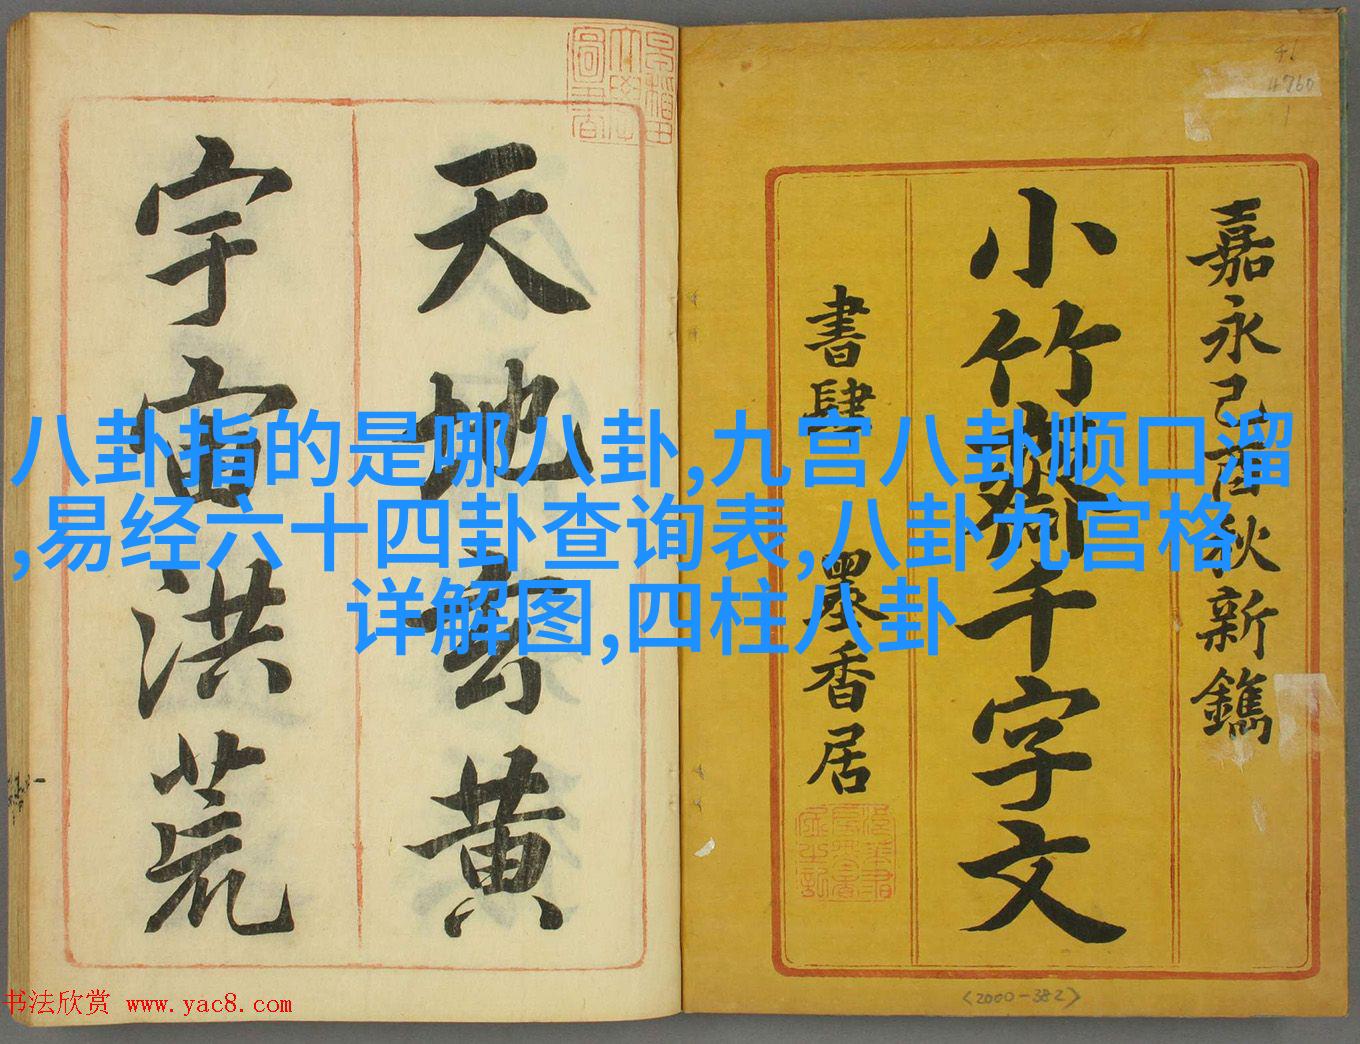 嘉永己酉秋新鐫
小竹齋千字文
書肆 墨香居
天地玄黃
宇宙洪荒
八卦指的是哪八卦,九宫八卦顺口溜
,易经六十四卦查询表,八卦九宫格
详解图,四柱八卦
46
4760
<2000-382>
书法欣赏 www.yac8.com